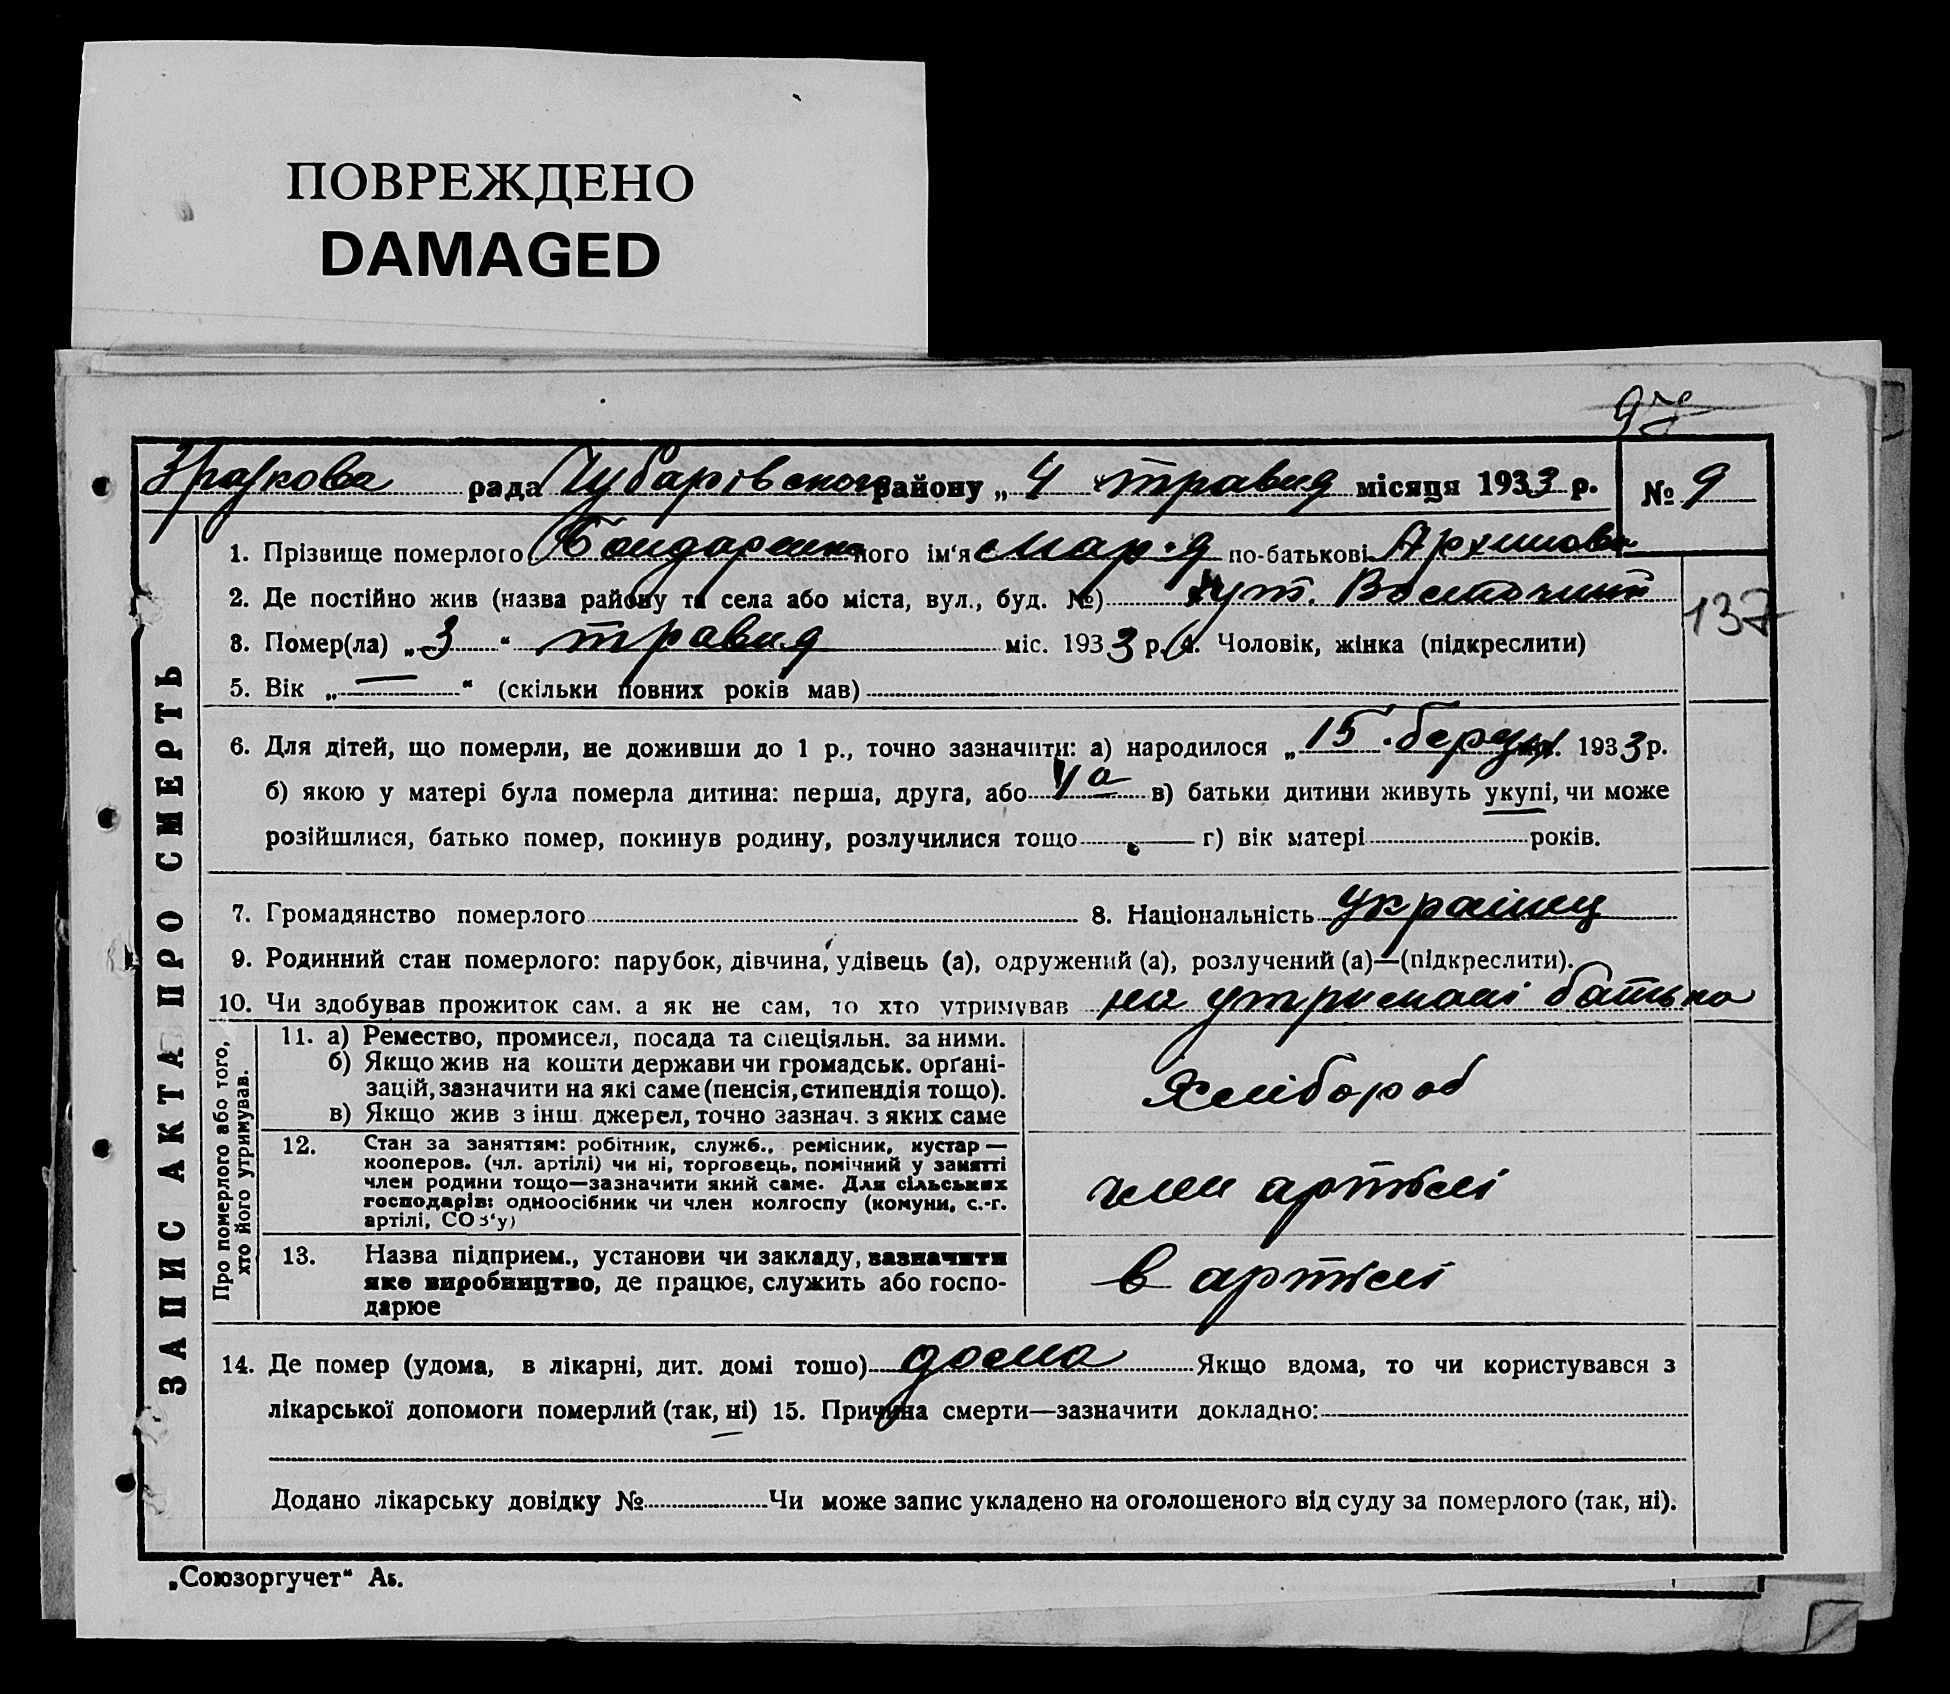 ПОВРЕЖДЕНО
DAMAGED
97
рада Чубарівского району „ 4 " травня місяця 1933 р. № 9
1. Прізвище померлого Бондаренко його ім'я Марія по-батькові Архипова
2. Де постійно жив (назва району та села або міста, вул., буд. №) хут. Восточний
137
3. Помер(ла) „ 3 " травня міс. 1933 р. 4. Чоловік, жінка (підкреслити)
5. Вік „ — " (скільки повних років мав)
6. Для дітей, що померли, не доживши до 1 р., точно зазначити: а) народилося „ 15 березня 1933 р.
б) якою у матері була померла дитина: перша, друга, або 4а в) батьки дитини живуть укупі, чи може
розійшлися, батько помер, покинув родину, розлучилися тощо г) вік матері років.
7. Громадянство померлого 8. Національність українц
9. Родинний стан померлого: парубок, дівчина, удівець (а), одружений (а), розлучений (а)—(підкреслити).
10. Чи здобував прожиток сам, а як не сам, то хто утримував на утримані батька
ЗАПИС АКТА ПРО СМЕРТЬ
Про померлого або того,
хто його утримував.
11. а) Ремество, промисел, посада та спеціяльн. за ними.
б) Якщо жив на кошти держави чи громадськ. орґані-
зацій, зазначити на які саме (пенсія, стипендія тощо).
в) Якщо жив з інш. джерел, точно зазнач. з яких саме
Хлібороб
12. Стан за заняттям: робітник, служб., ремісник, кустар —
кооперов. (чл. артілі) чи ні, торговець, помічний у занятті
член родини тощо—зазначити який саме. Для сільських
господарів: одноосібник чи член колгоспу (комуни, с.-г.
артілі, СОЗ'у)
член артілі
13. Назва підприєм., установи чи закладу, зазначити
яке виробництво, де працює, служить або госпо-
дарює
в артілі
14. Де помер (удома, в лікарні, дит. домі тощо) дома Якщо вдома, то чи користувався з
лікарської допомоги померлий (так, ні) 15. Причина смерти—зазначити докладно:
Додано лікарську довідку № Чи може запис укладено на оголошеного від суду за померлого (так, ні).
„Союзоргучет" А5.